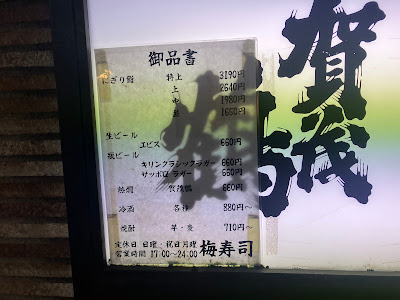 御品書
にぎり鮨 特上 3190円
上 2640円
中 1980円
並 1660円
生ビール
エビス 660円
瓶ビール
キリンクラシックラガー 660円
サッポロラガー 660円
熱燗 賀茂鶴 660円
冷酒 各種 880円〜
焼酎 芋・麦 710円〜
定休日 日曜・祝日月曜
営業時間 17:00〜24:00
梅寿司
賀茂鶴